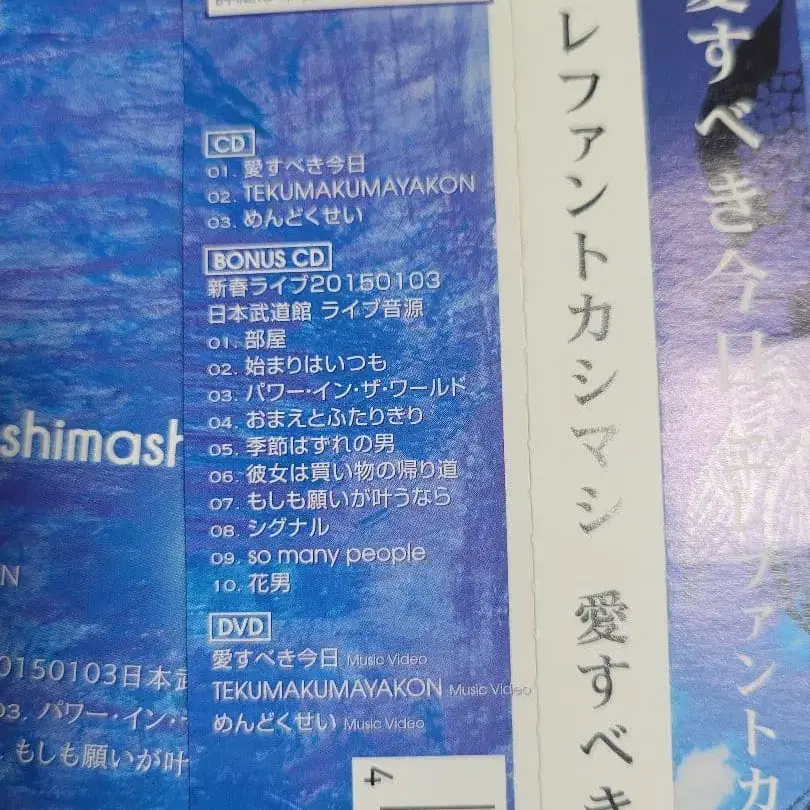 CD
01. 愛すべき今日
02. TEKUMAKUMAYAKON
03. めんどくせい
BONUS CD
新春ライブ20150103
日本武道館 ライブ音源
01. 部屋
02. 始まりはいつも
03. パワー・イン・ザ・ワールド
04. おまえとふたりきり
05. 季節はずれの男
06. 彼女は買い物の帰り道
07. もしも願いが叶うなら
08. シグナル
09. so many people
10. 花男
DVD
愛すべき今日 Music Video
TEKUMAKUMAYAKON Music Video
めんどくせい Music Video
4
shimash
N
0150103日本武
03. パワー・イン・
もしも願いが叶
レファントカシマシ 愛すべき
愛すべき今日
レファントカ